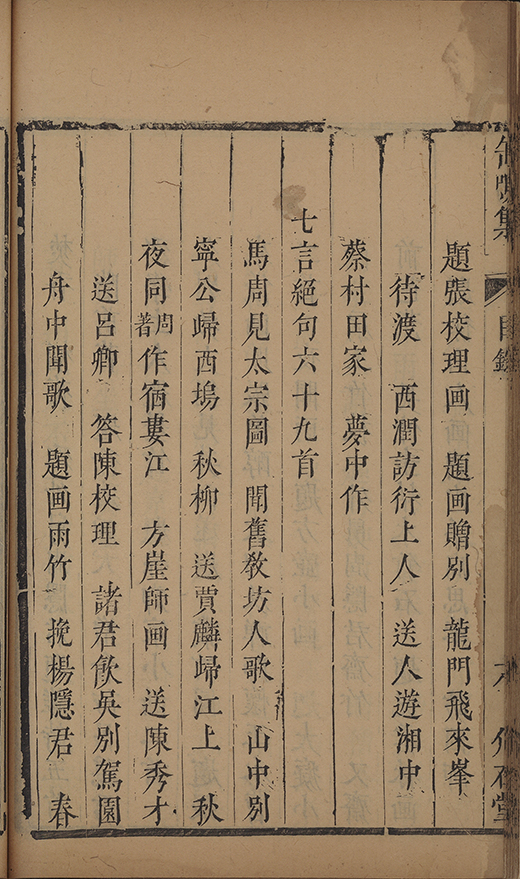 集
目錄
題張校理画 題画贈別 龍門飛來峯
待渡 西澗訪衍上人 送人遊湘中
蔡村田家 夢中作
七言絕句六十九首
馬周見太宗圖 聞舊教坊人歌 山中別
寧公歸西塢 秋柳 送賈麟歸江上 秋
夜同周著作宿婁江 方崖師画 送陳秀才
送呂卿 答陳校理 諸君飲吳別駕園
舟中聞歌 題画雨竹 挽楊隱君 春